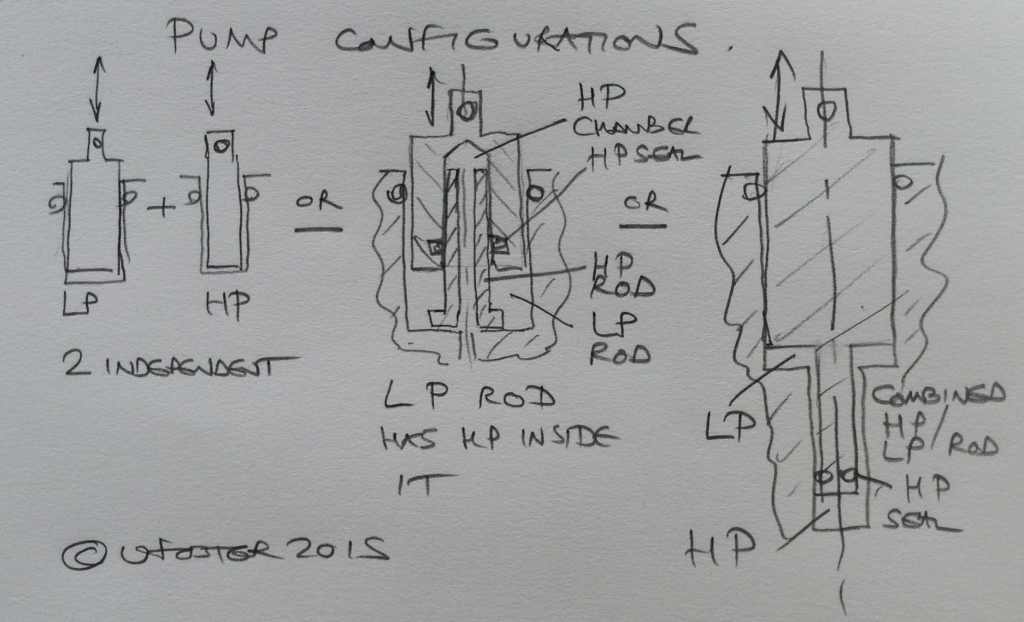 PUMP CONFIGURATIONS.
LP
+
HP
2 INDEPENDENT
OR
HP
CHAMBER
HP SEAL
HP
ROD
LP
ROD
LP ROD
HAS HP INSIDE
IT
OR
LP
COMBINED
HP/
LP/ROD
HP
SEAL
HP
© UFOSTER 2015